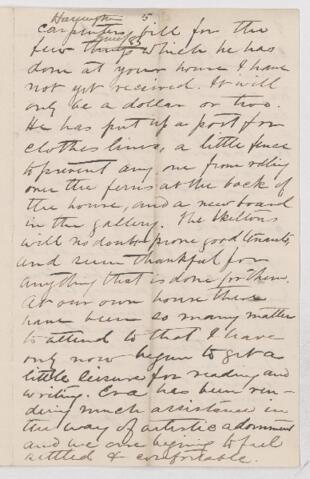 5
carpenters bill for the
few things which he has
done at your house I have
not yet received. It will
only be a dollar or two.
He has put up a post for
clothes line, a little fence
to prevent any one from
over the ferns at the back of
the house, and a new board
in the gallery. The Skeltons
will no doubt prove good tenants,
and seem thankful for
anything that is done for them.
At our own house there
have been so many matters
to attend to that I have
only now begun to get a
little leisure for reading and
writing. Eva has been ren-
dering much assistance in
the way of artistic adornment
and we are beginning to feel
settled & comfortable.